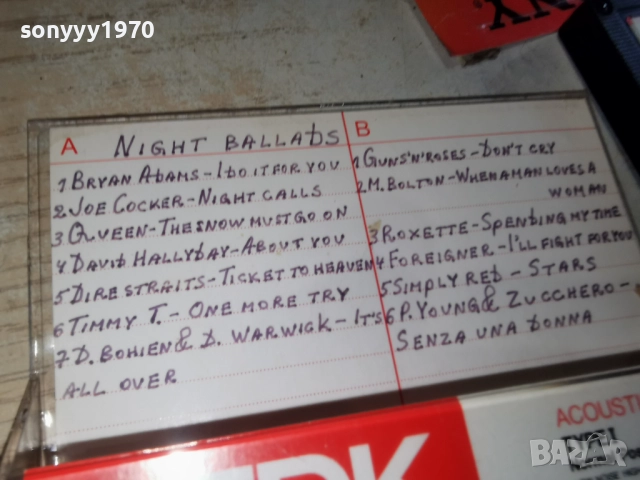 sonyyy1970
XX
A NIGHT BALLADS
1 BRYAN ADAMS - I DO IT FOR YOU
2 JOE COCKER - NIGHT CALLS
3 QVEEN - THE SNOW MUST GO ON
4 DAVID HALLYDAY - ABOUT YOU
5 DIRE STRAITS - TICKET TO HEAVEN
6 TIMMY T. - ONE MORE TRY
7 D. BOHIEN & D. WARWICK - IT'S
ALL OVER
B
1 GUNS'N'ROSES - DON'T CRY
2 M. BOLTON - WHEN A MAN LOVES A
WOMAN
3 ROXETTE - SPENDING MY TIME
4 FOREIGNER - I'LL FIGHT FOR YOU
5 SIMPLY RED - STARS
6 P. YOUNG & ZUCCHERO -
SENZA UNA DONNA
TDK
ACOUSTI
BAZAR